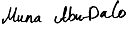 Muna Abu-Dalo